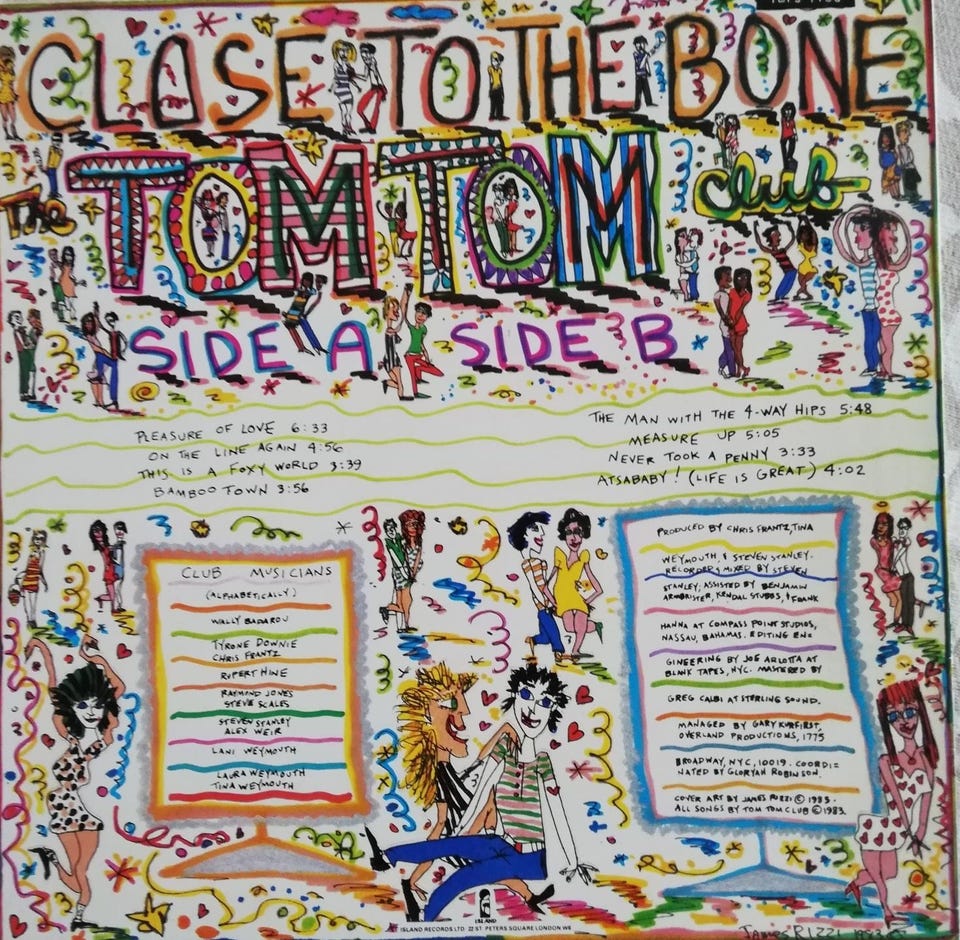 CLOSE TO THE BONE
The TOM TOM Club
SIDE A SIDE B
PLEASURE OF LOVE 6:33
ON THE LINE AGAIN 4:56
THIS IS A FOXY WORLD 3:39
BAMBOO TOWN 3:56
THE MAN WITH THE 4-WAY HIPS 5:48
MEASURE UP 5:05
NEVER TOOK A PENNY 3:33
ATSABABY! (LIFE IS GREAT) 4:02
CLUB MUSICIANS
(ALPHABETICALLY)
WALLY BADAROU
TYRONE DOWNIE
CHRIS FRANTZ
RUPERT HINE
RAYMOND JONES
STEVE SCALES
STEVEN STANLEY
ALEX WEIR
LANI WEYMOUTH
LAURA WEYMOUTH
TINA WEYMOUTH
PRODUCED BY CHRIS FRANTZ, TINA
WEYMOUTH, & STEVEN STANLEY.
RECORDED & MIXED BY STEVEN
STANLEY, ASSISTED BY BENJAMIN
ARMBRISTER, KENDAL STUBBS, & FRANK
HANNA AT COMPASS POINT STUDIOS,
NASSAU, BAHAMAS. EDITING EN=
GINEERING BY JOE ARLOTTA AT
BLANK TAPES, NYC. MASTERED BY
GREG CALBI AT STERLING SOUND.
MANAGED BY GARY KURFIRST,
OVERLAND PRODUCTIONS, 1775
BROADWAY, NYC, 10019. COORDI=
NATED BY GLORYAH ROBINSON.
COVER ART BY JAMES RIZZI © 1983.
ALL SONGS BY TOM TOM CLUB © 1983.
ISLAND
ISLAND RECORDS LTD 22 ST PETERS SQUARE LONDON W6
JAMES RIZZI 1983